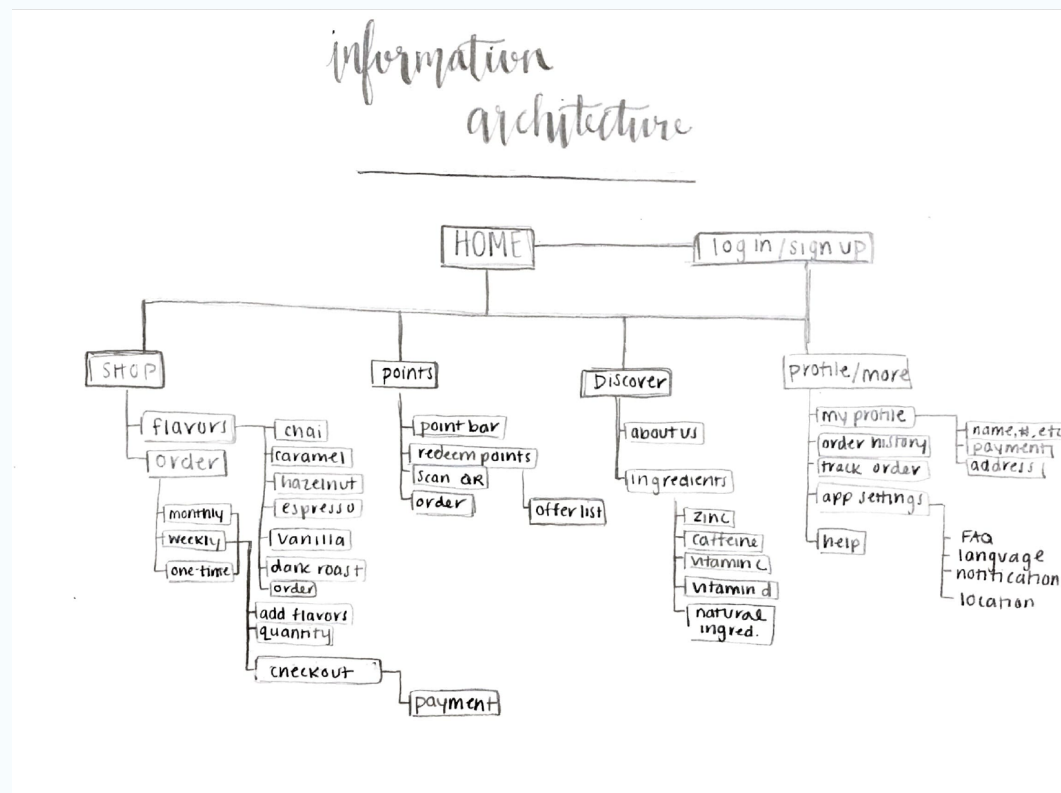 information
architecture
HOME
log in/sign up
SHOP
points
Discover
profile/more
flavors
chai
caramel
hazelnut
espresso
vanilla
dark roast
order
order
monthly
weekly
one-time
add flavors
quantity
checkout
payment
point bar
redeem points
scan QR
order
offer list
about us
ingredients
zinc
caffeine
vitamin c
vitamin d
natural
ingred.
my profile
order history
track order
app settings
help
name, #, etc
payment
address
FAQ
language
notification
location